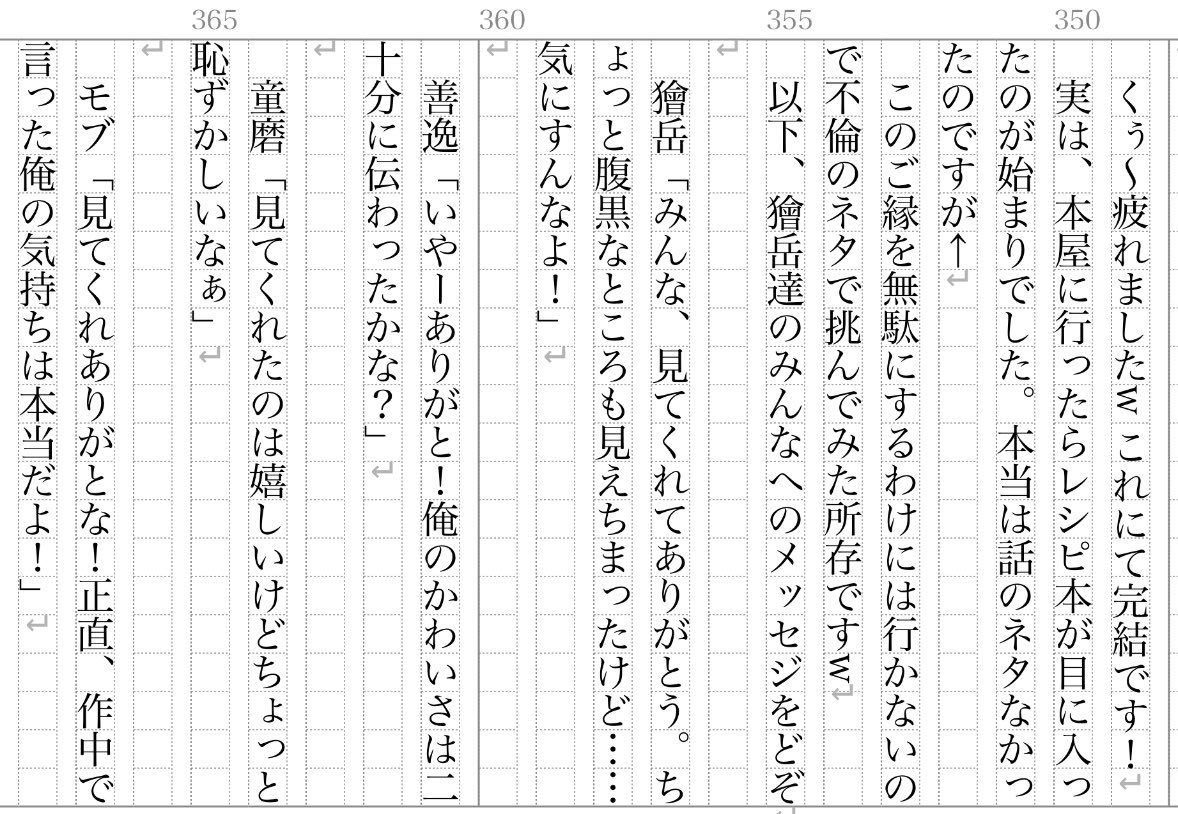 365 360 355 350
　くぅ～疲れましたw これにて完結です！
　実は、本屋に行ったらレシピ本が目に入っ
たのが始まりでした。本当は話のネタなかっ
たのですが↑
　このご縁を無駄にするわけには行かないの
で不倫のネタで挑んでみた所存ですw
　以下、獪岳達のみんなへのメッセジをどぞ
　獪岳「みんな、見てくれてありがとう。ち
ょっと腹黒なところも見えちまったけど……
気にすんなよ！」
　善逸「いやーありがと！俺のかわいさは二
十分に伝わったかな？」
　童磨「見てくれたのは嬉しいけどちょっと
恥ずかしいなぁ」
　モブ「見てくれありがとな！正直、作中で
言った俺の気持ちは本当だよ！」